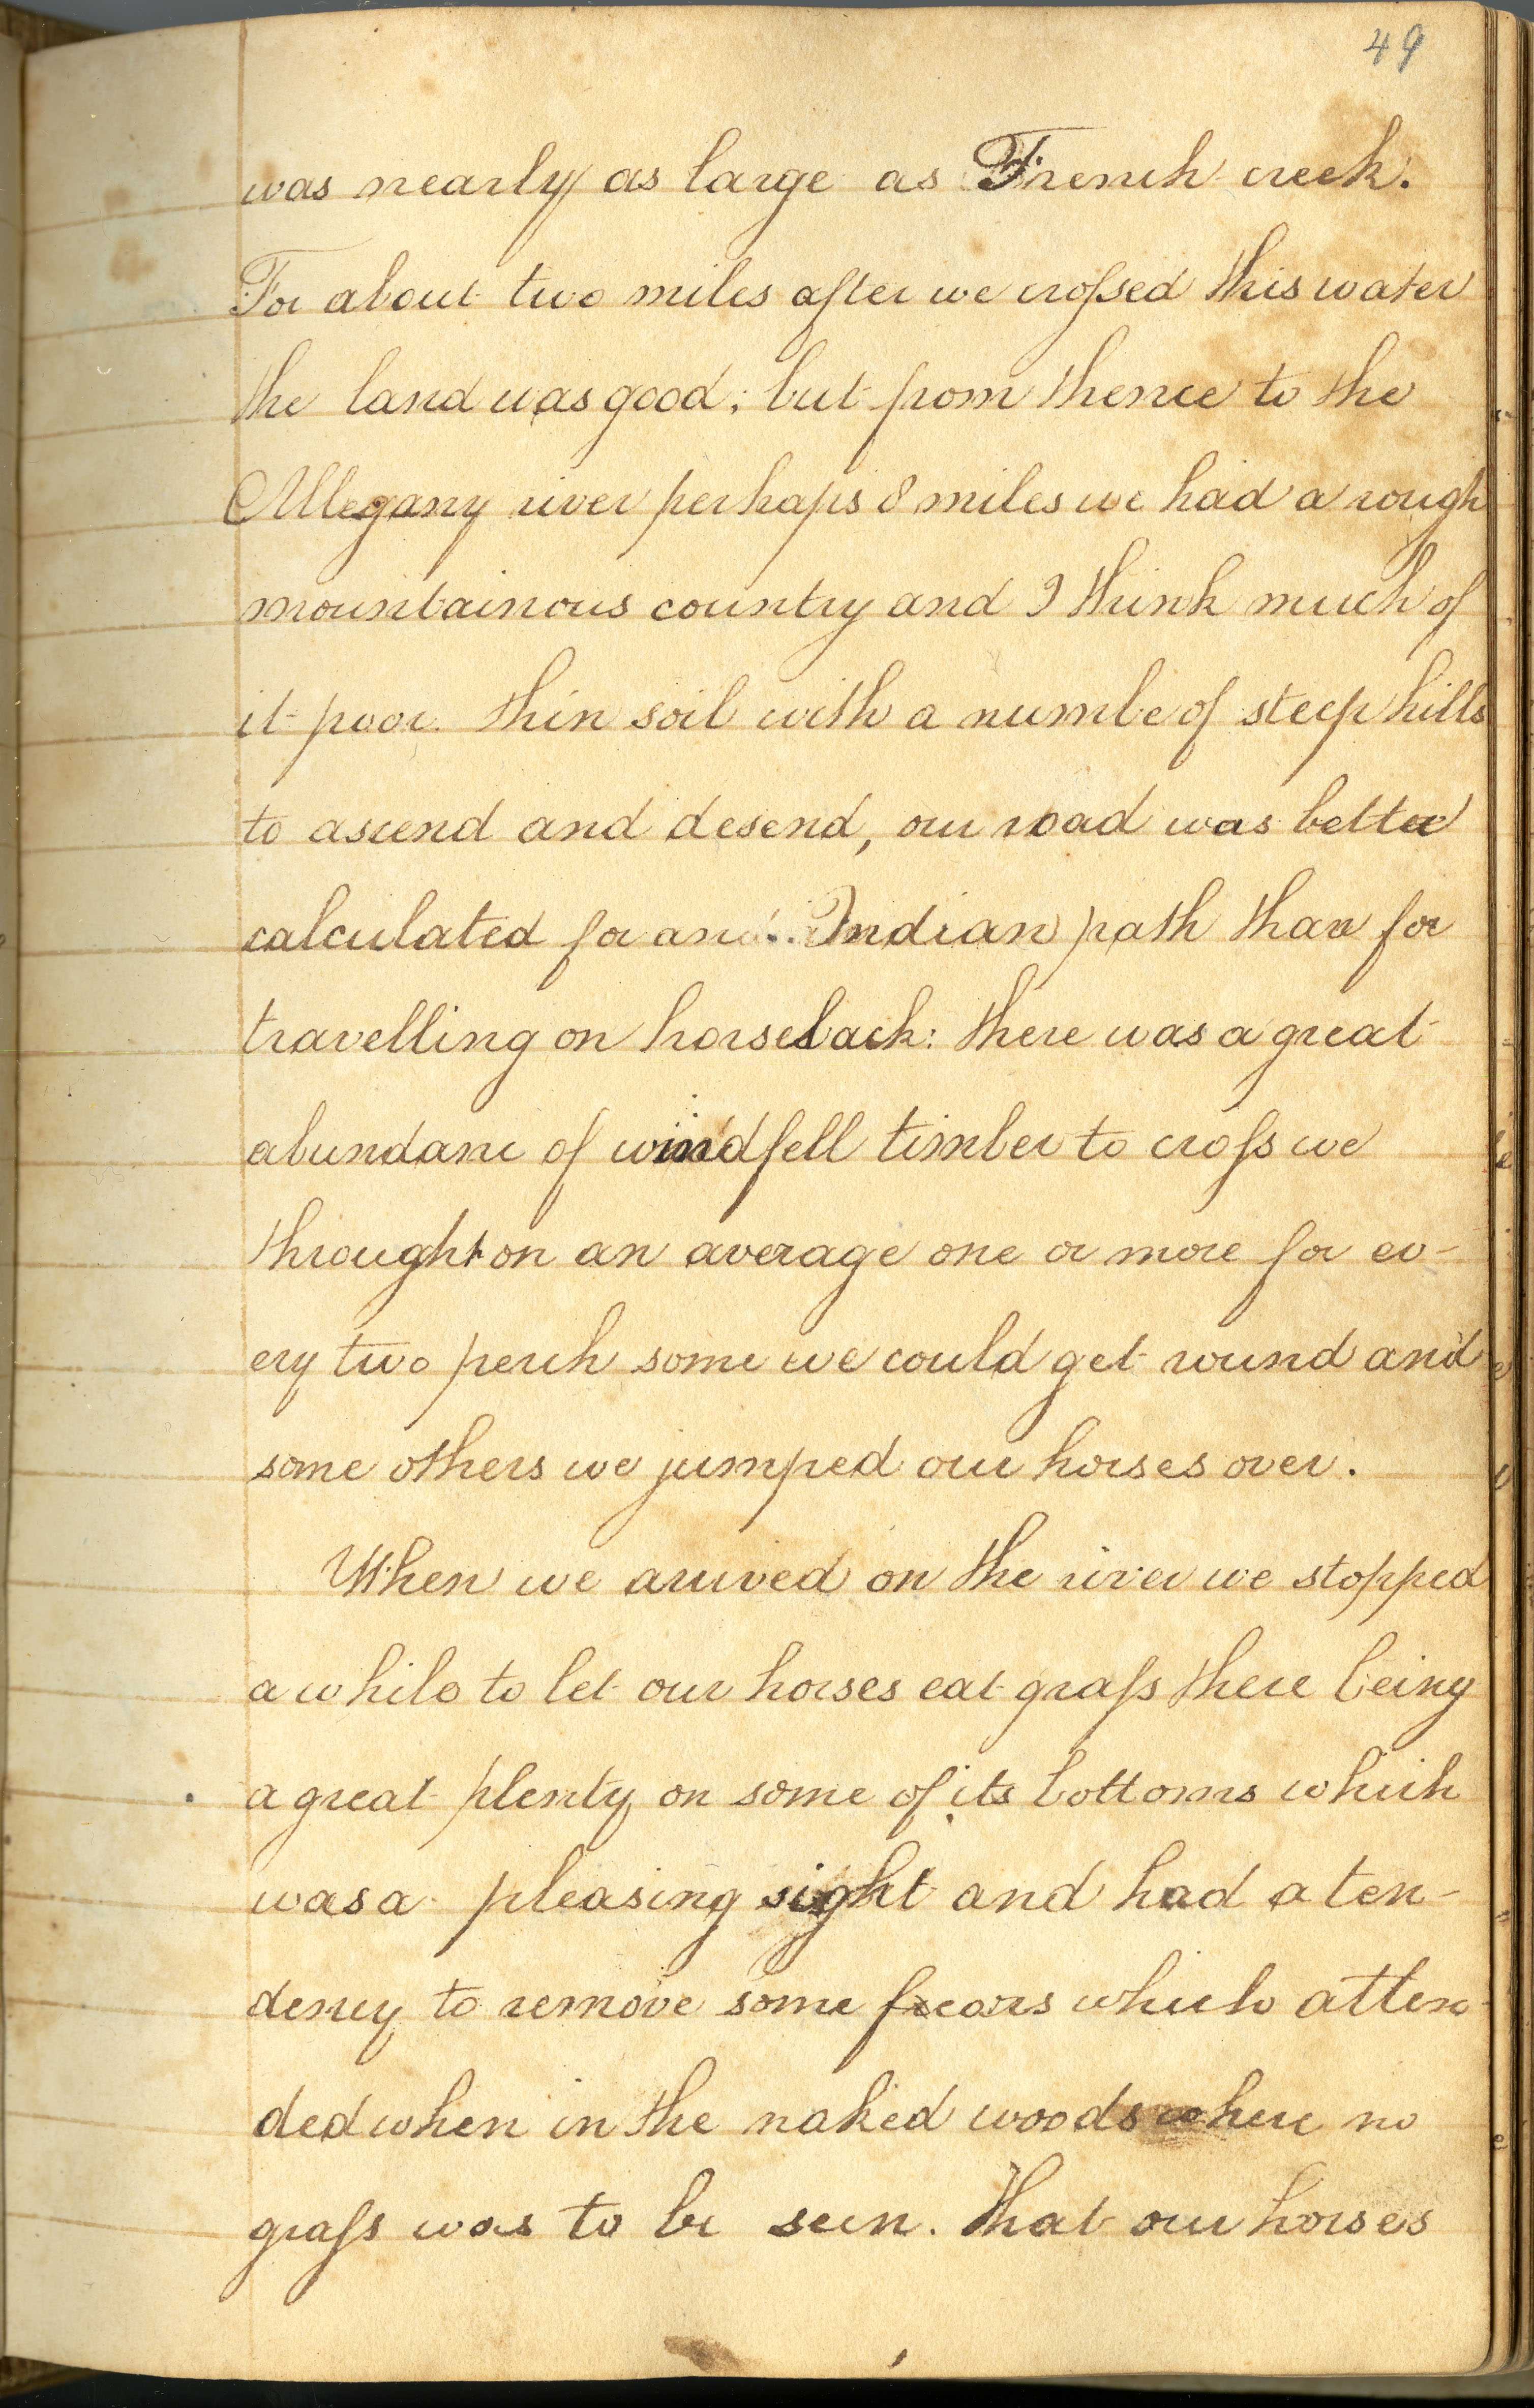 49
was nearly as large as French creek.
For about two miles after we crossed this water
the land was good; but from thence to the
Allegany river perhaps 8 miles we had a rough
mountainous country and I think much of
it poor thin soil with a numbe of steep hills
to ascend and desend, our road was better
calculated for an Indian path than for
travelling on horseback: there was a great
abundanc of windfell timber to cross we
throught on an average one or more for ev-
ery two perch some we could get round and
some others we jumped our horses over.
When we arrived on the river we stopped
a while to let our horses eat grass there being
a great plenty on some of its bottoms which
was a pleasing sight and had a ten-
dency to remove some fears which atten-
ded when in the naked woods where no
grass was to be seen. that our horses